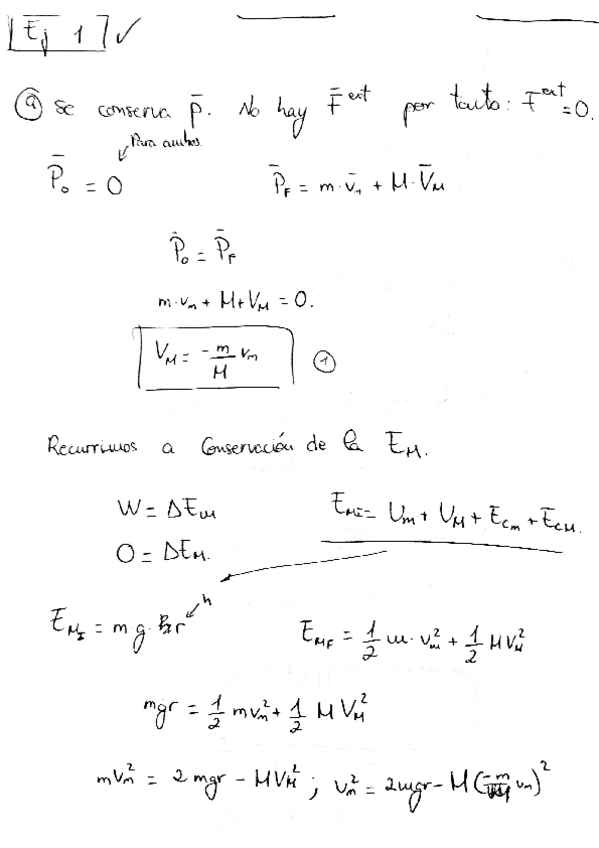 Ej 1 ✓
ⓐ Se conserva p̄. No hay F̄ᵉˣᵗ por tanto: F̄ᵉˣᵗ=0.
Para ambos
P̄₀ = 0 P̄_F = m·v̄_m + M·V̄_M
P̄₀ = P̄_F
m·v_m + M+V_M = 0.
V_M = -m/M v_m ①
Recurrimos a Conservación de la E_M.
W = ΔE_M E_Mi = U_m + U_M + E_cm + E_cM.
0 = ΔE_M.
h
E_MI = m g · r E_MF = 1/2 m · v_m² + 1/2 M V_M²
mgr = 1/2 m v_m² + 1/2 M V_M²
m v_m² = 2 mgr - M V_M² ; v_m² = 2mgr - M (-m/M v_m)²